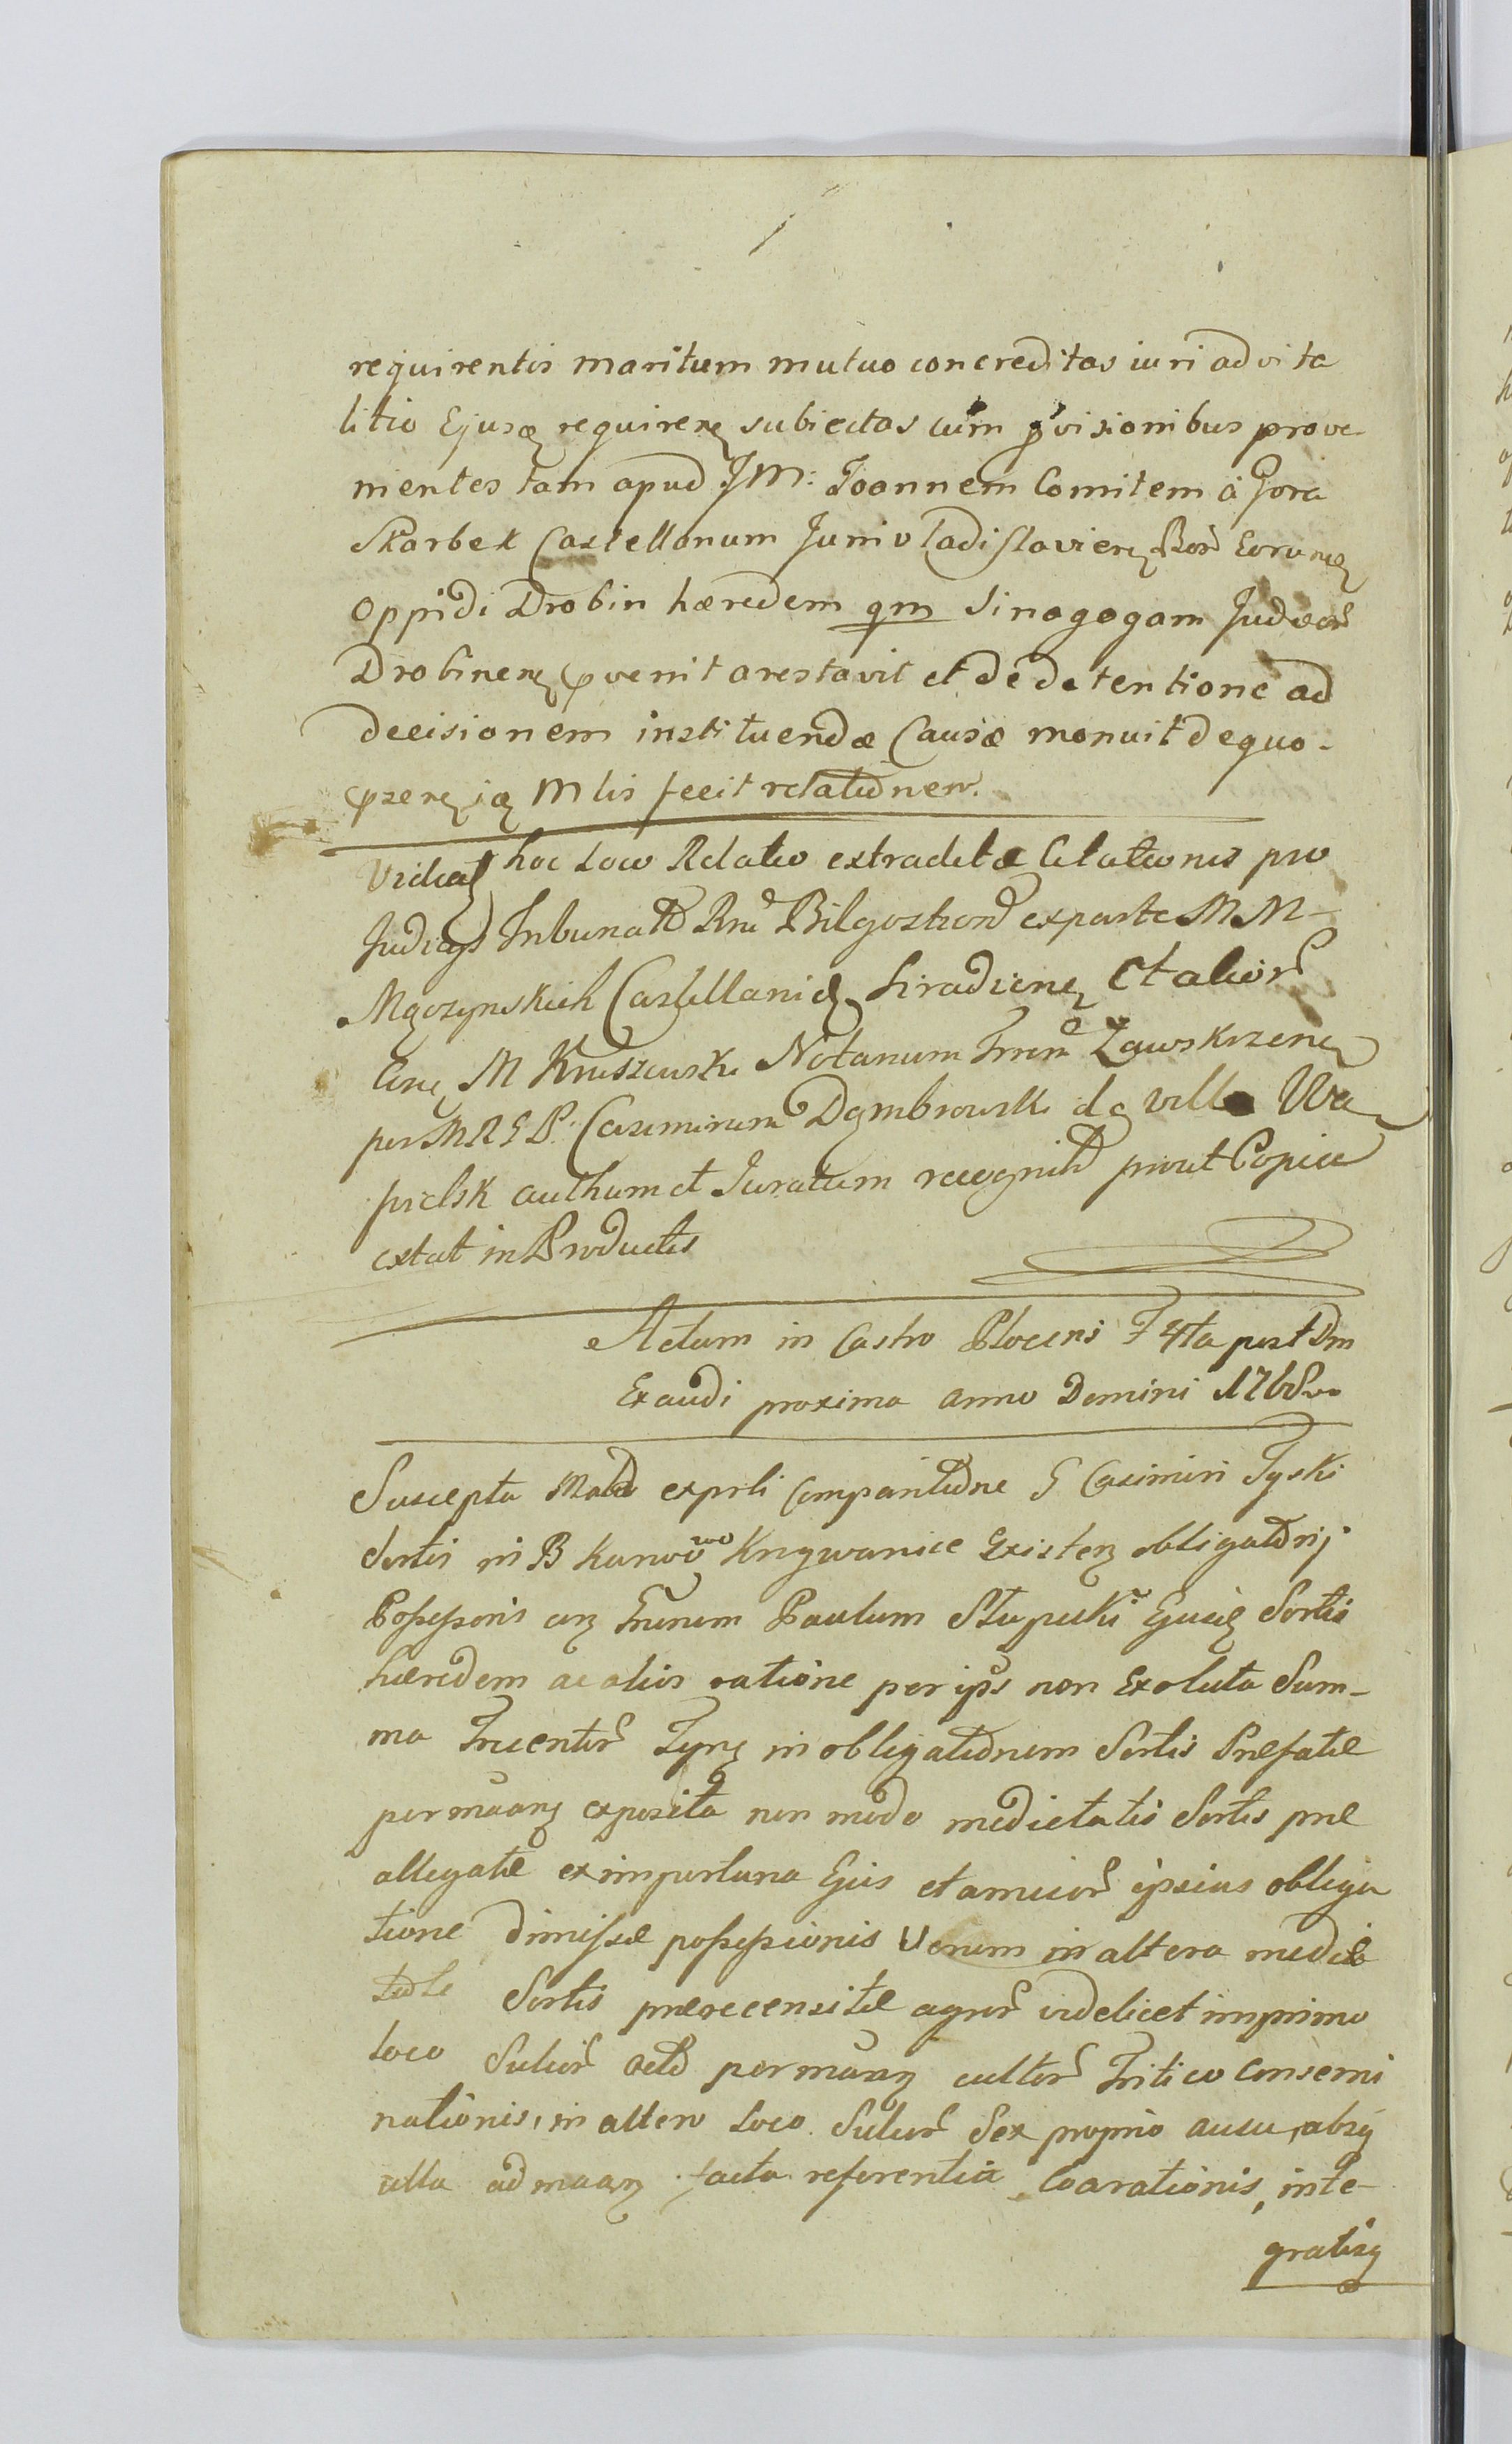 requirentis maritum mutuo concreditas iuri advita
litio Ejusq requirenz subiectas cum pvisionibus prove
nientes tam apud JM: Joannem Comitem à Gora
Skarbek Castellanum Junivladislavienz Bor Eorumq
Oppidi Drobin hæredem qm Sinagogam Judæor
Drobinenz pvenit arestavit et de detentione ad
decisionem instituendæ Causæ monuit dequo-
Mlis fecit relationem.
hoc Loco Relatio extraditæ Citationis pro
Judicys Tribunal Rni Bilgostien exparte MM
Mączynskich Castellanid Siradienz Et alior
M Kruszewski Notarium Trem Zawskrzenz
per MRGP. Casimirum Dąmbrowski de villa Wa
pielsk authum et Juratum recognit prout Copia
extat in Productis
Actum in Castro Plocensi F 4ta post Dm
Exaudi proxima Anno Domini 1768vo
Suscepta exprli Comparitione G Casimiri Tyski
Sortis in B Karwowo Krzywanice Existenz obligatorij
Possessoris Paulum Słupecki Ejusdz Sortis
hæredem ac alios ratione per ips non Exoluta Sum-
ma Trecentor Tynz in obligationem Sortis Præfatæ
permaanz exposita non modo medietatis Sortis præ
allegatæ eximportuna Ejus et amicor ipsius obliga
tione dimissæ possessionis Verum in altera medie
tate Sortis prærecensitæ agror videlicet in primo
loco Sulcor Octo permaanz cultor Tritico Consemi
nationis, in altero Loco Sulcor Sex proprio ausu, absq
ulla ad maanz facta referentia, Coarationis, inte-
gratisq